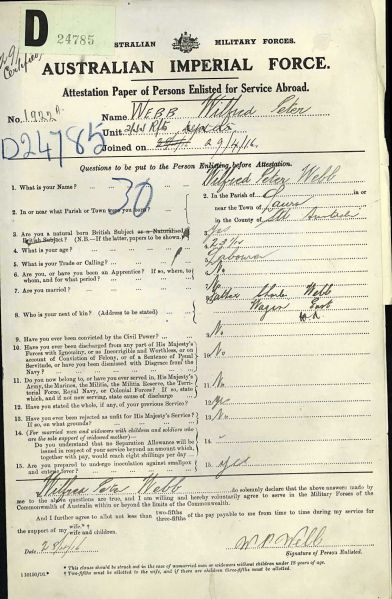 D 24785
AUSTRALIAN MILITARY FORCES.
AUSTRALIAN IMPERIAL FORCE.
Attestation Paper of Persons Enlisted for Service Abroad.
No. 1922 A
Name WEBB Wilfred Peter
Unit
Joined on 29/4/16.
D24785
Questions to be put to the Person Enlisting before Attestation.
30
1. What is your Name?
Wilfred Peter Webb
2. In or near what Parish or Town were you born?
2. In the Parish of in or
near the Town of
in the County of Sth Australia
3. Are you a natural born British Subject or a Naturalised
British Subject? (N.B.—If the latter, papers to be shown)
3. Yes
4. What is your age?
5. What is your Trade or Calling?
5. Labourer
6. Are you, or have you been an Apprentice? If so, where, to
whom, and for what period?
6. No
7. Are you married?
7. No
8. Who is your next of kin? (Address to be stated)
Father Charles Webb
Wagin
W.A.
9. Have you ever been convicted by the Civil Power?
9. No
10. Have you ever been discharged from any part of His Majesty's
Forces with Ignominy, or as Incorrigible and Worthless, or on
account of Conviction of Felony, or of a Sentence of Penal
Servitude, or have you been dismissed with Disgrace from the
Navy?
10. No
11. Do you now belong to, or have you ever served in, His Majesty's
Army, the Marines, the Militia, the Militia Reserve, the Terri-
torial Force, Royal Navy, or Colonial Forces? If so, state
which, and if not now serving, state cause of discharge
11. No
12. Have you stated the whole, if any, of your previous Service?
12. Yes
13. Have you ever been rejected as unfit for His Majesty's Service?
If so, on what grounds?
13. No
14. (For married men and widowers with children and soldiers who
are the sole support of widowed mother)—
Do you understand that no Separation Allowance will be
issued in respect of your service beyond an amount which,
together with pay, would reach eight shillings per day?
14. -
15. Are you prepared to undergo inoculation against smallpox
and enteric fever?
15. Yes
I, Wilfred Peter Webb do solemnly declare that the above answers made by
me to the above questions are true, and I am willing and hereby voluntarily agree to serve in the Military Forces of the
Commonwealth of Australia within or beyond the limits of the Commonwealth.
And I further agree to allot not less than two-fifths three-fifths of the pay payable to me from time to time during my service for
the support of my wife.* wife and children.†
Date
W P Webb
Signature of Person Enlisted.
* This clause should be struck out in the case of unmarried men or widowers without children under 18 years of age.
† Two-fifths must be allotted to the wife, and if there are children three-fifths must be allotted.